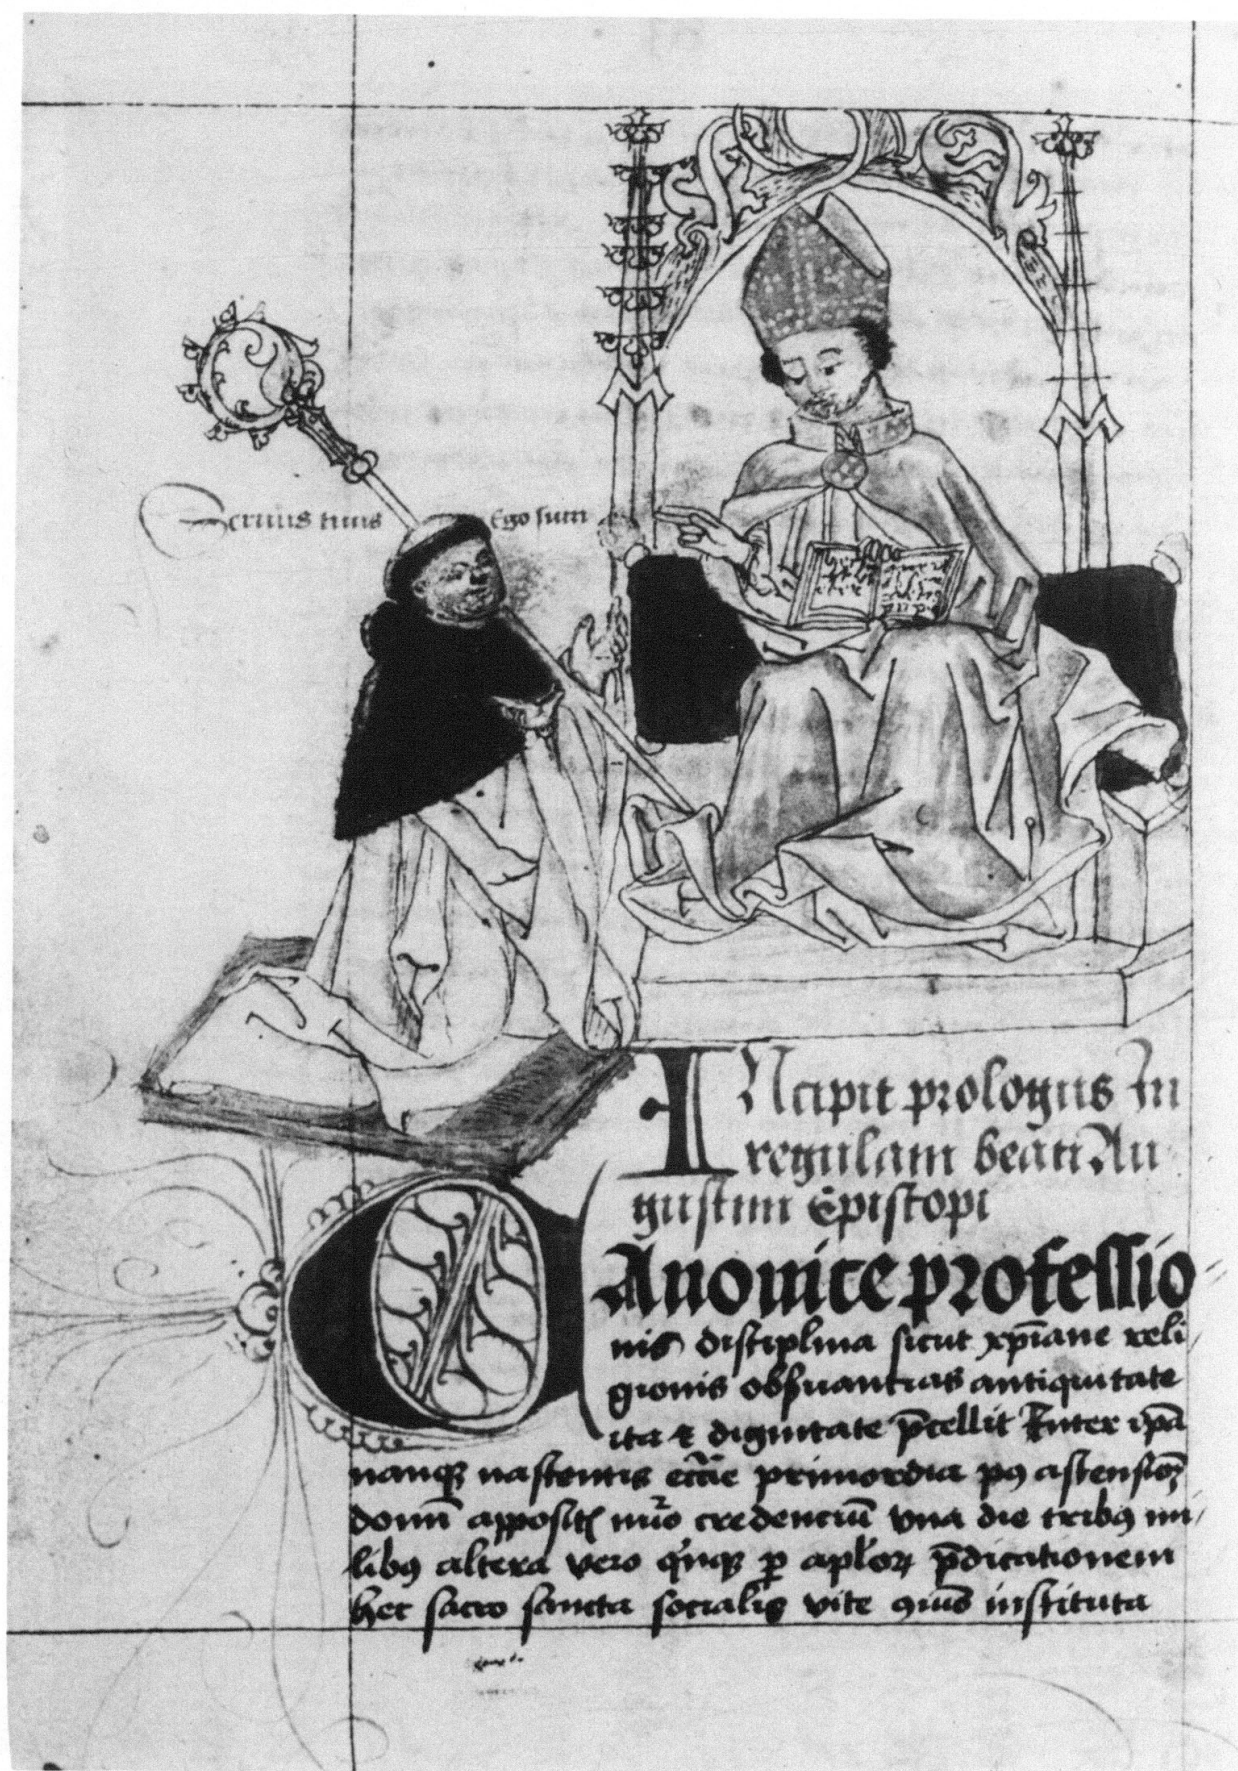 Seruus tuus Ego sum
INcipit prologus In
regulam beati Au
gustini Episcopi
CAnonice professio
nis disciplina sicut xp̄iane reli
gionis obs̄uantias antiquitate
ita et dignitate p̄cellit Inter ip̄a
nanqꝫ nascentis ecc̄ie primordia pꝯ ascensioꝫ
domī appositꝭ nūo credenciū vna die tribꝯ mi
libꝯ altera vero qͥnqꝫ ꝑ aplōꝝ p̄dicationem
hec sacro sancta socialis vite ꝯiuō instituta